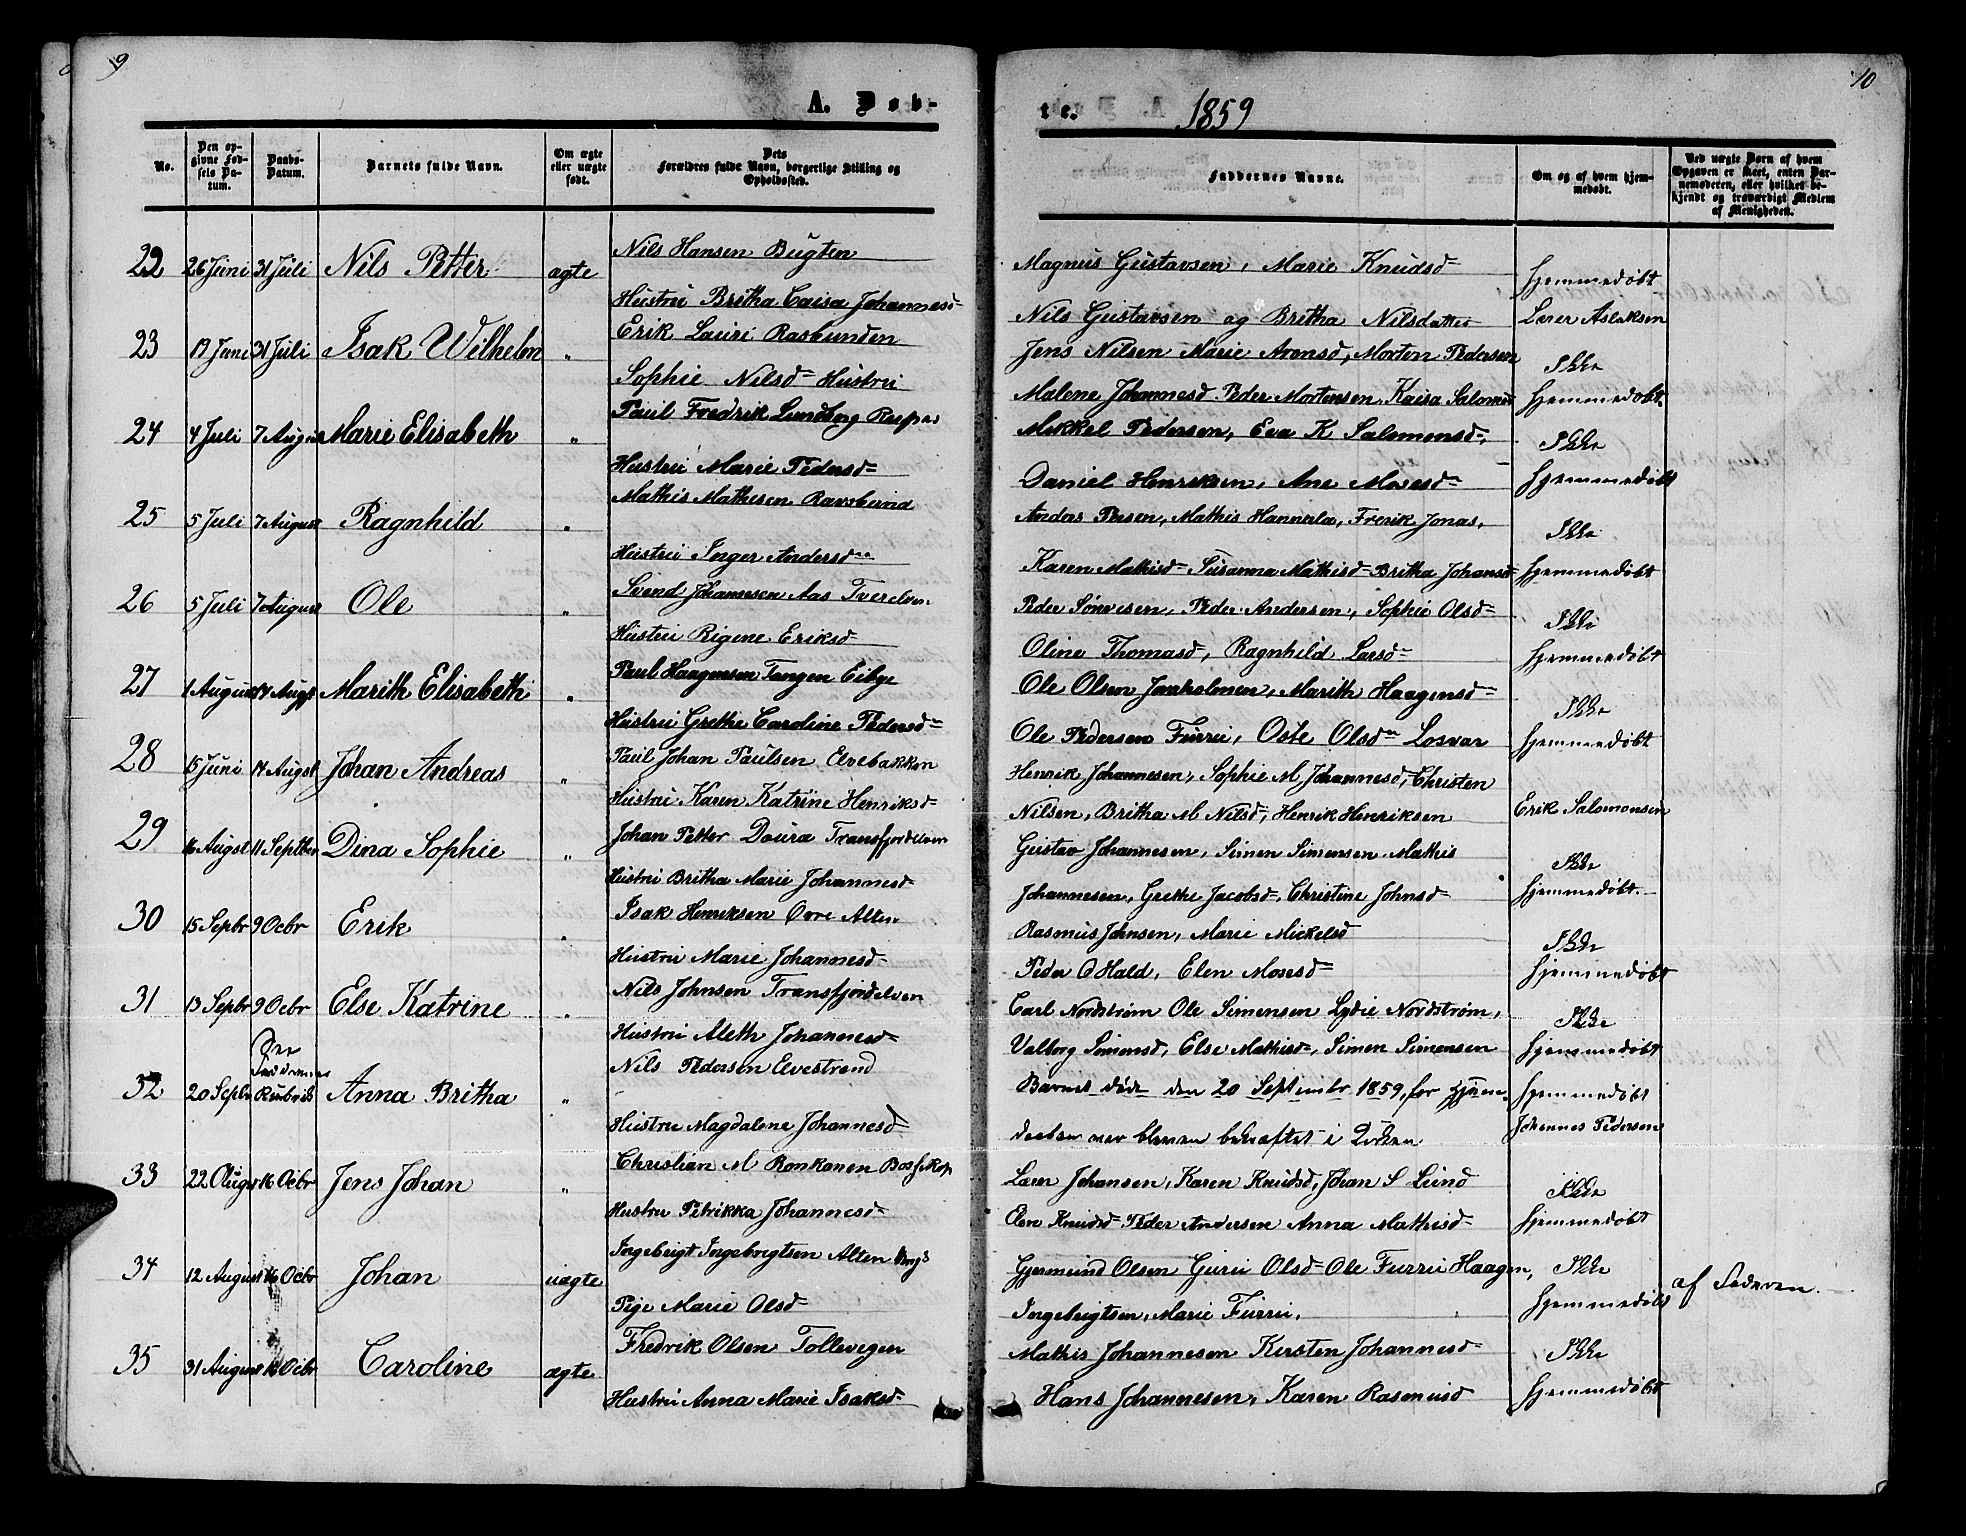 9
10
A. Døb-
te.
1859
No.
Den opgivne Fødsels Datum.
Daabs-Datum.
Barnets fulde Navn.
Om ægte eller uægte født.
Dets Forældres fulde Navn, borgerlige Stilling og Opholdssted.
Faddernes Navne.
Om og af hvem hjemmedøbt.
Ved uægte Born af hvem Opgaven er skeet, enten Barnemoderen, eller hvilket bekjendt og troværdigt Medlem af Menigheden.
22 26 Juni 31 Juli Nils Petter ægte Nils Hansen Bugten Magnus Gustavsen, Marie Knudsd= hjemmedøbt
Hustru Britha Caisa Johannesd= Nils Gustavsen og Britha Nilsdatter Aslaksen
23 19 Juni 31 Juli Isak Wilhelm " Erik Lauri Rasbunden Jens Nilsen Marie Aronsd, Morten Pedersen Ikke
Sophie Nilsd= Hustru Malene Johannesd. Peder Mortensen, Kaisa hjemmedøbt
24 4 Juli 7 August Marie Elisabeth " Paul Fredrik Lundberg Mikkel Pedersen, Eva K Salomonsd, Ikke
Hustru Marie Pedersd= Daniel Henriksen, Ane Mosesd= hjemmedøbt
25 5 Juli 7 August Ragnhild " Mathis Mathisen Ravsbund Anders Persen, Mathis Hannerla, Frerik Jonas, Ikke
Hustru Inger Andersd= Karen Mathisd= Susanna Mathisd= Britha Johansd= hjemmedøbt
26 5 Juli 7 August Ole " Svend Johannesen Aas Tverelven Peder Sørensen, Peder Andersen, Sophie Olsd= Ikke
Hustru Rigene Eriksd= Oline Thomasd, Ragnhild Larsd= hjemmedøbt
27 1 August 14 Augst Marith Elisabeth " Paul Haagensen Tangen Eiby Ole Olsen Jonholmen, Marith Haagensd= Ikke
Hustru Grethe Caroline Pedersd= Ole Pedersen Furru, Olsd= Losvar hjemmedøbt
28 15 Juni 14 Augst Johan Andreas " Paul Johan Paulsen Elvebakken Henrik Johannesen, Sophie M Johannesd, Christen
Hustru Karen Katrine Henriksd= Nilsen, Britha M Nilsd, Henrik Henriksen Erik Salomonsen
29 16 Augst 11 Septber Dina Sophie " Johan Petter Doura Transfjordelven Gustav Johannesen, Simen Simensen Mathis Ikke
Hustru Britha Marie Johannesd= Johannesen, Grethe Jacobsd=, Christine Johnsd= hjemmedøbt
30 15 Sepbr 9 Ocbr Erik " Isak Henriksen Øvre Alten Rasmus Johnsen, Marie Mickelsd Ikke
Hustru Marie Johannesd= Peder O Hald, Elen Mosesd= hjemmedøbt
31 13 Sepbr 9 Ocbr Else Katrine " Nils Johnsen Transfjordelven Carl Nordstrøm Ole Simensen Lydie Nordstrøm, Ikke
Hustru Aleth Johannesd= Valborg Simonsd, Else Mathisd=, Simen Simensen hjemmedøbt
32 20 Sepbr See Faddernes Rubrik Anna Britha " Nils Pedersen Elvestrand Barnet døde den 20 Septembr 1859, før Gjen- hjemmedøbt
Hustru Magdalene Johannesd= var bleven bekræftet i Kirken Johannes Pedersen
33 22 Augst 16 Ocbr Jens Johan " Christian M Ronkanen Bossekop Johansen, Karen Knudsd, Johan S Lund Ikke
Hustru Petrikka Johannesd= Elen Knudsd= Peder Andersen Anna Mathisd= hjemmedøbt
34 12 August 16 Ocbr Johan uægte Ingebrigt Ingebrigtsen Alten Ungk Gjermund Olsen Guru Olsd= Ole Furru Haagen, Ikke af Faderen
Pige Marie Olsd= Ingebrigtsen, Marie Furru, hjemmedøbt
35 31 August 16 Ocbr Caroline ægte Fredrik Olsen Tollevigen Mathis Johannesen Kirsten Johannesd= Ikke
Hustru Anna Marie Isaksd= Hans Johannesen, Karen Rasmusd hjemmedøbt